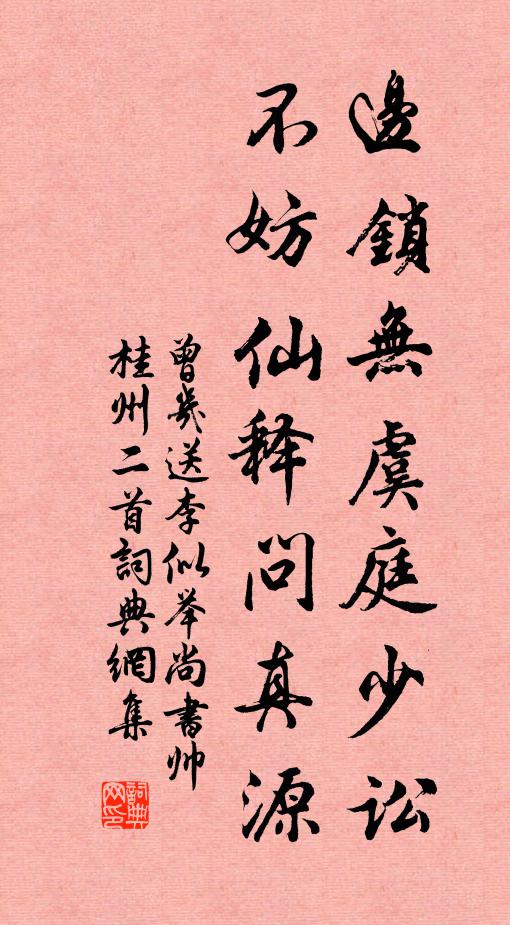 邊鎖無虞庭少訟
不妨仙释問真源
曾幾送李似举尚書帅
桂州二首詞典網集
詞典网印